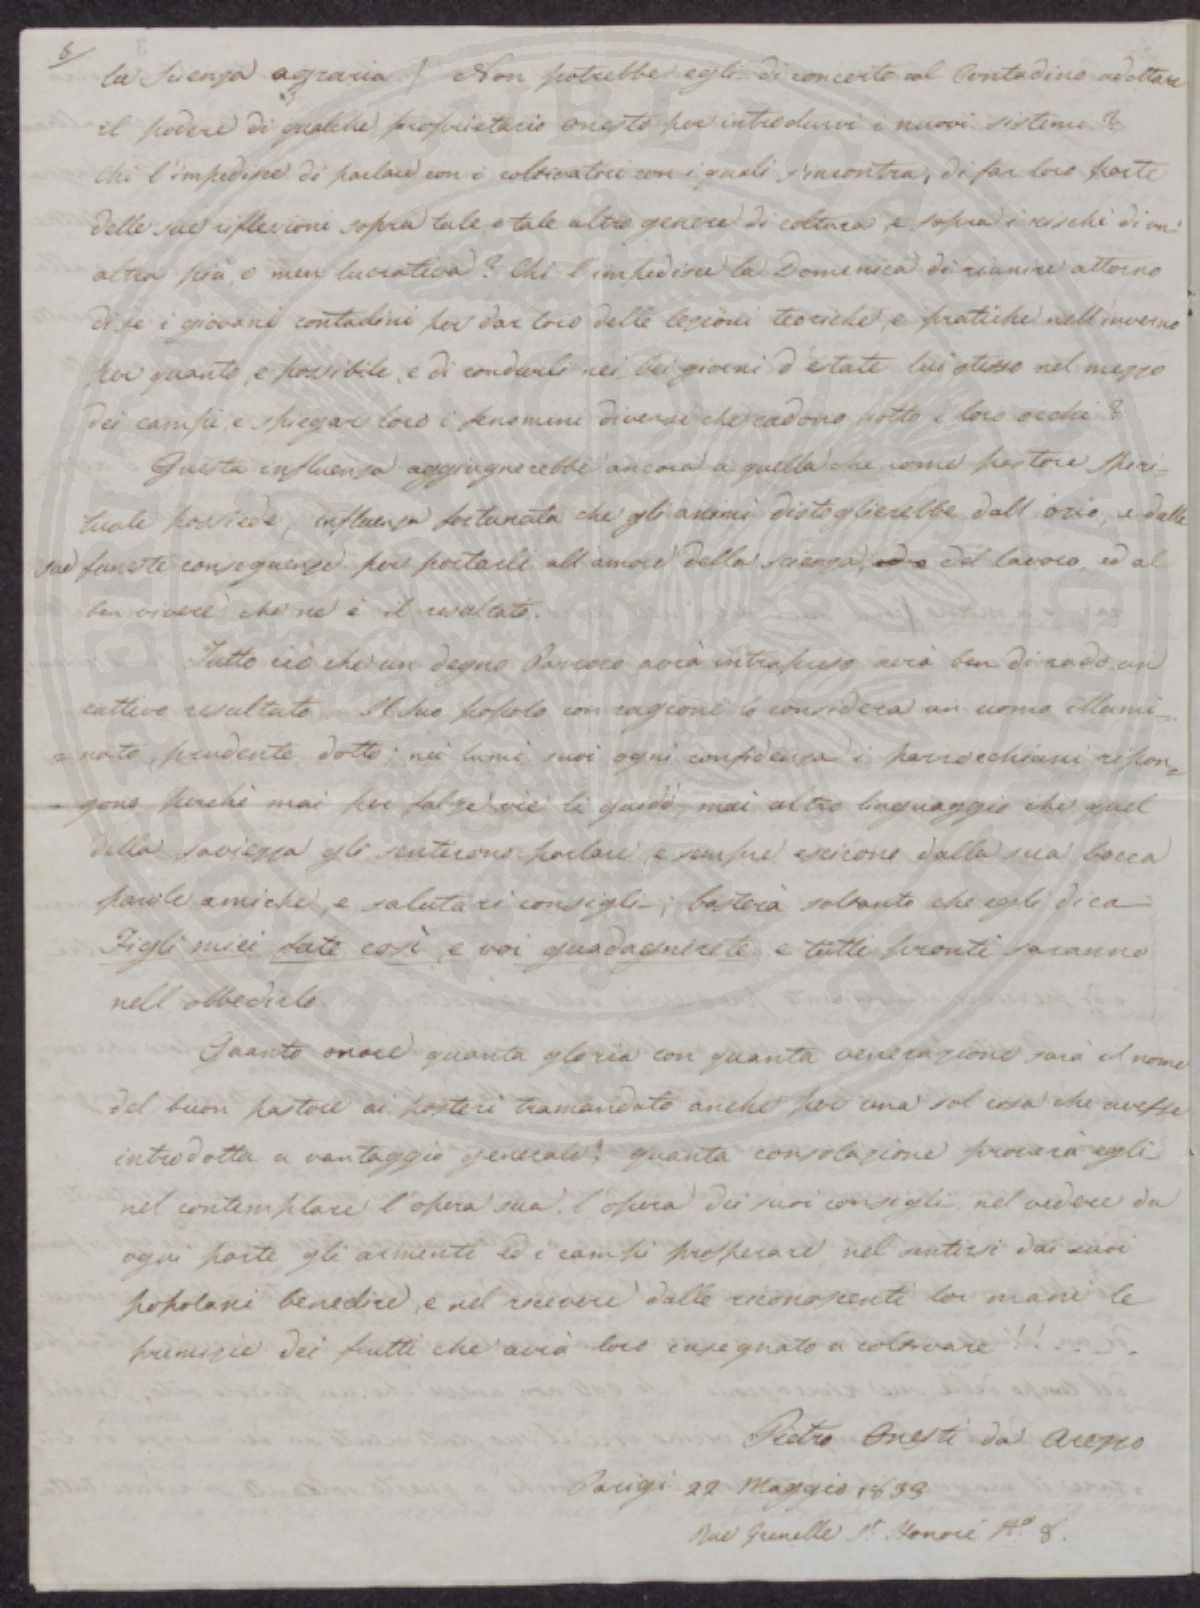 8/
la scienza agraria! Non potrebbe egli di concerto col Contadino adottare
il podere di qualche proprietario onesto per introdurvi i nuovi sistemi?
chi l'impedisce di parlare con i coltivatori con i quali s'incontra, di far loro parte
delle sue riflessioni sopra tale, o tale altro genere di coltura, e sopra i rischi di un'
altra più, o men lucrativa? Chi l'impedisce la Domenica di riunire attorno
di se i giovani contadini per dar loro delle lezioni teoriche, e pratiche nell'inverno
per quanto, e possibile, e di condurli nei bei giorni d'estate lui stesso nel mezzo
dei campi, e spiegar loro i fenomeni diversi che cadono sotto i loro occhi?
Questa influenza aggiugnerebbe ancora a quella che come pastore Speri-
tuale possiede, influenza fortunata che gli animi distoglierebbe dall'ozio, e dalle
sue funeste conseguenze per portarli all'amore della scienza, del lavoro, ed al
ben vivere che ne è il resultato.
Tutto ciò che un degno Parroco avrà intrapreso avrà ben di rado un
cattivo resultato. Il suo popolo con ragione lo considera un uomo illumi=
=nato, prudente, dotto; nei lumi suoi ogni confidenza i parrocchiani ripon=
=gono, perchè mai per false vie li guidò, mai altro linguaggio che quel
della saviezza gli sentirono parlare, e sempre escirono dalla sua bocca
parole amiche, e salutari consigli; basterà soltanto che egli dica
Figli miei fate così, e voi guadagnerete, e tutti pronti saranno
nell'obbedirlo.
Quanto onore quanta gloria con quanta venerazione sarà il nome
del buon pastore ai posteri tramandato anche per una sol cosa che avesse
introdotta a vantaggio generale; quanta consolazione proverà egli
nel contemplare l'opera sua, l'opera dei suoi consigli, nel vedere da
ogni parte gli armenti ed i campi prosperare, nel sentirsi dai suoi
popolani benedire, e nel ricevere dalle riconoscenti lor mani le
primizie dei frutti che avrà loro insegnato a coltivare!!!...
Pietro Onesti da Arezzo
Parigi 22 Maggio 1833
Rue Grenelle St. Honoré No. 8.